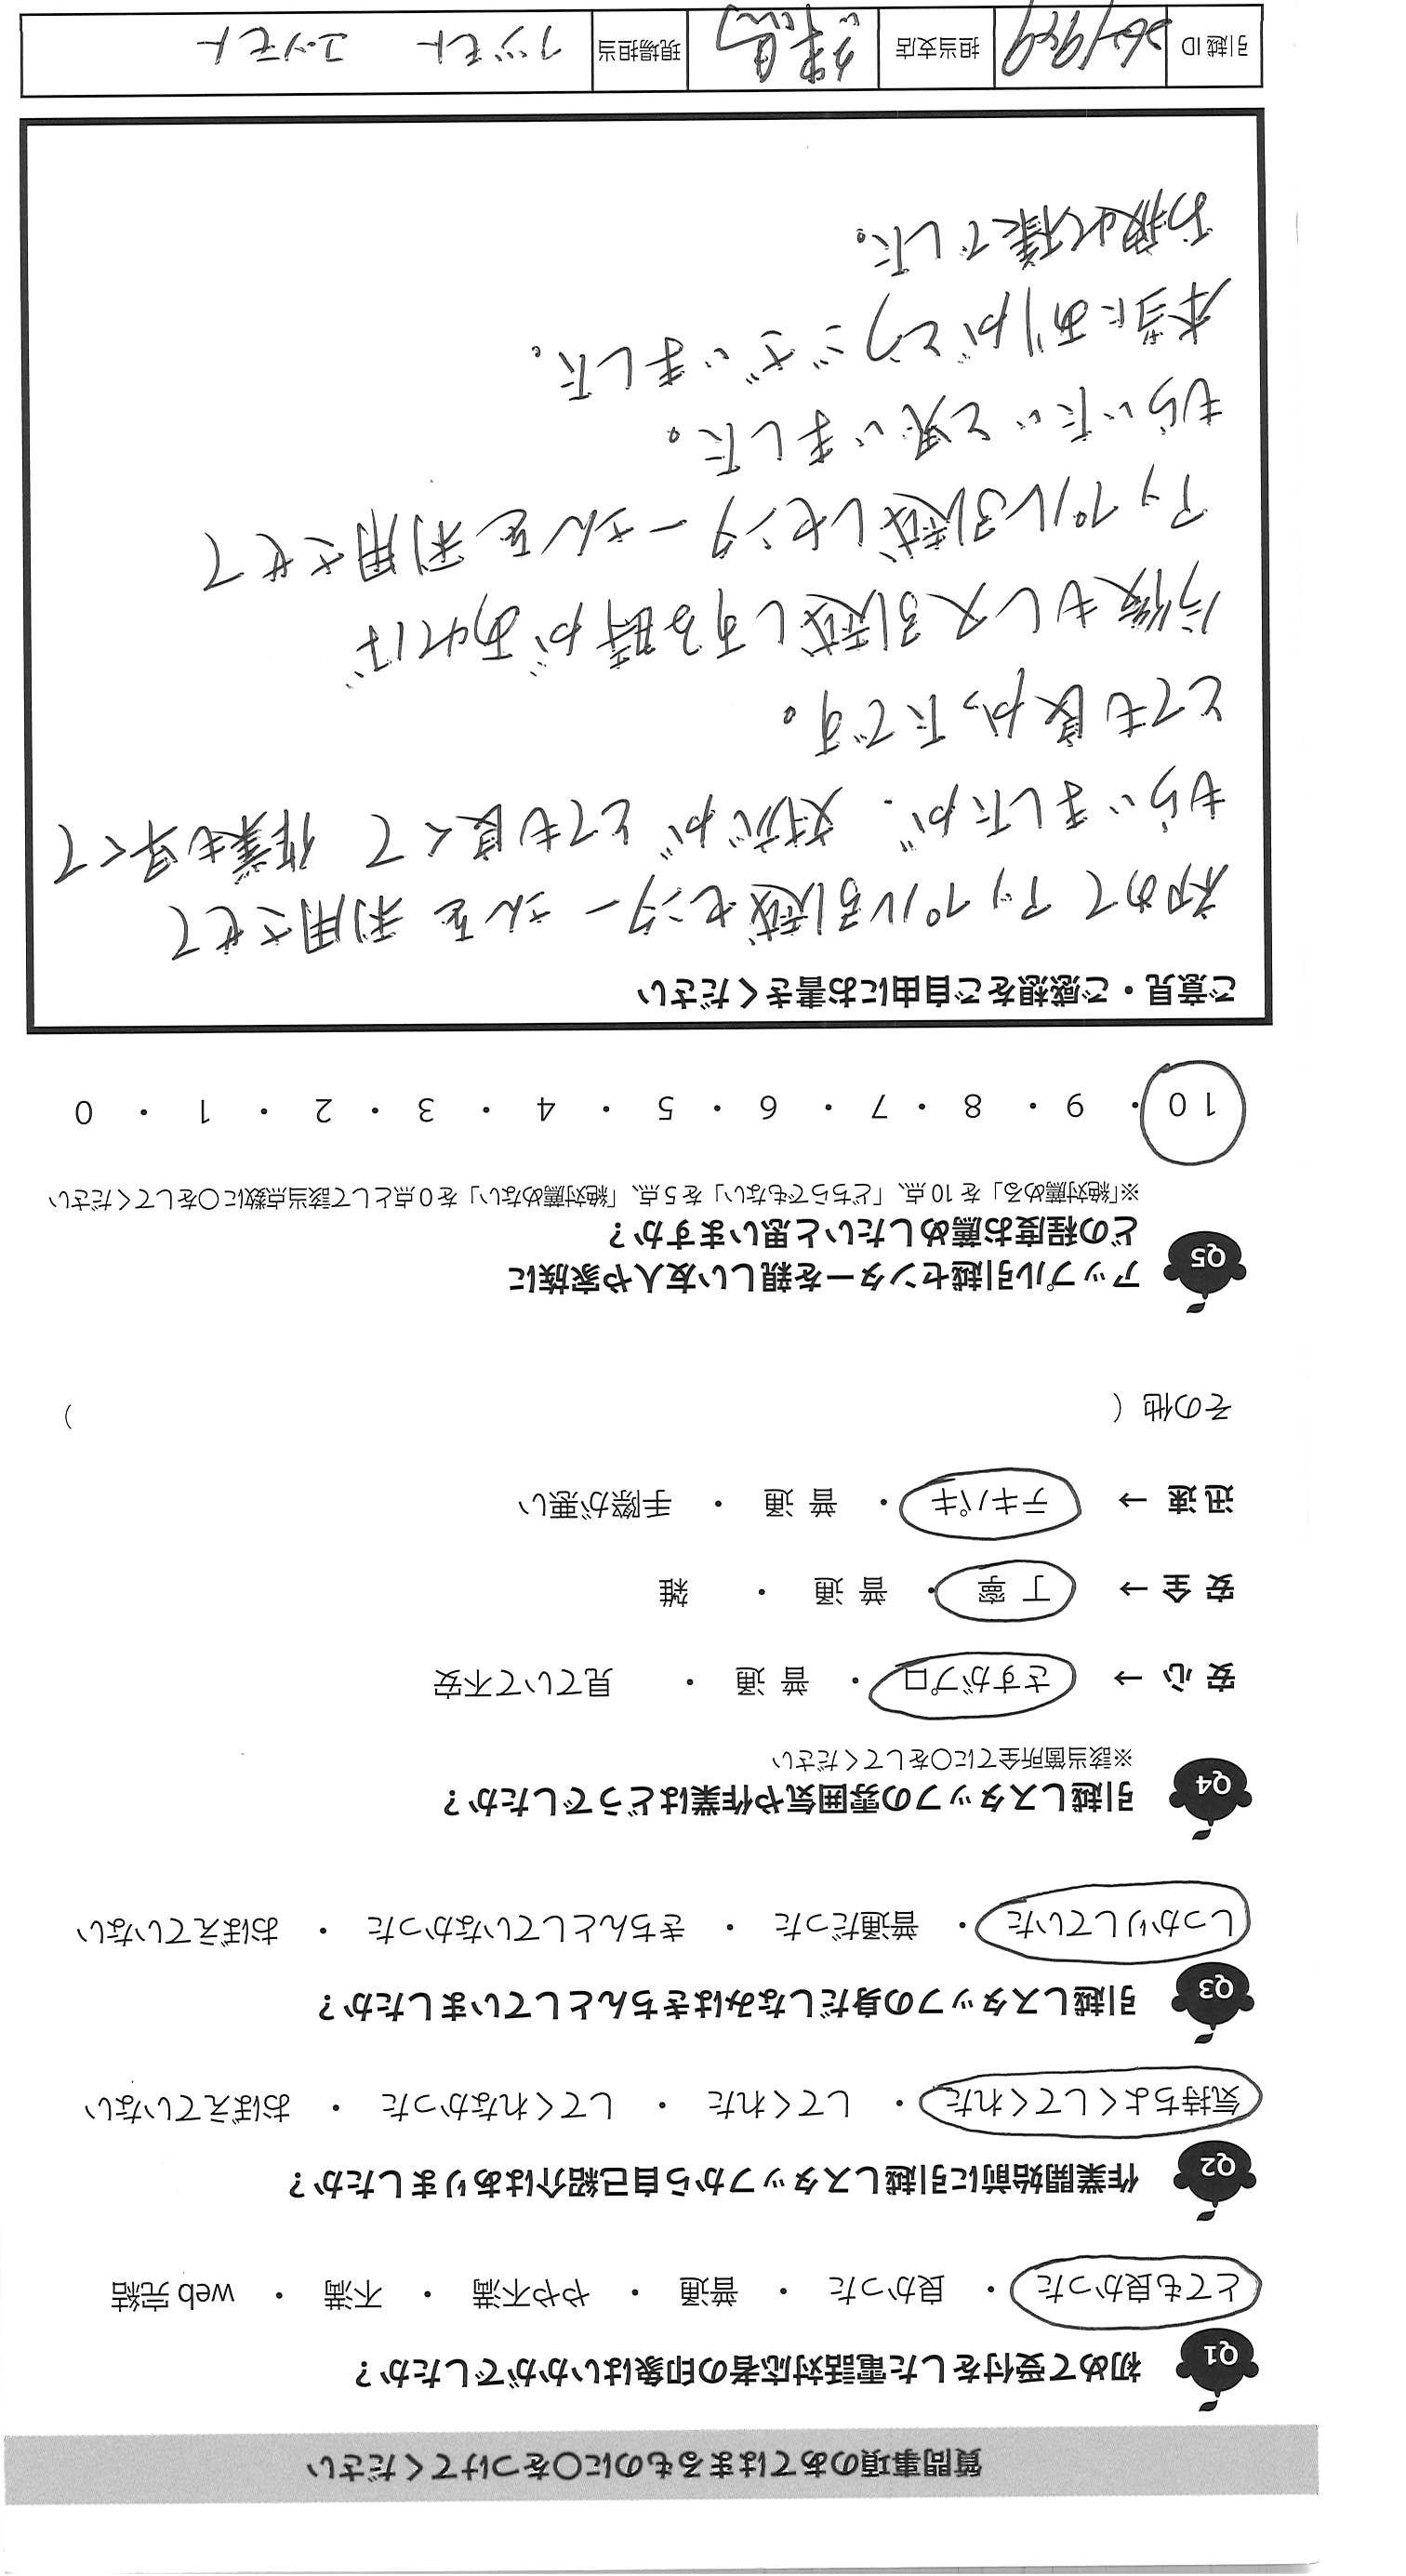 質問事項のあてはまるものに○をつけてください
Q1 初めて受付をした電話対応者の印象はいかがでしたか？
とても良かった ・ 良かった ・ 普通 ・ やや不満 ・ 不満 ・ web 完結
Q2 作業開始前に引越しスタッフから自己紹介はありましたか？
気持ちよくしてくれた ・ してくれた ・ してくれなかった ・ おぼえていない
Q3 引越しスタッフの身だしなみはきちんとしていましたか？
しっかりしていた ・ 普通だった ・ きちんとしていなかった ・ おぼえていない
Q4 引越しスタッフの雰囲気や作業はどうでしたか？
※該当箇所全てに○をしてください
安 心 → さすがプロ ・ 普 通 ・ 見ていて不安
安 全 → 丁 寧 ・ 普 通 ・ 雑
迅 速 → テキパキ ・ 普 通 ・ 手際が悪い
その他（ ）
Q5 アップル引越センターを親しい友人や家族に
どの程度お薦めしたいと思いますか？
※「絶対薦める」を 10 点、「どちらでもない」を 5 点、「絶対薦めない」を 0 点として該当点数に○をしてください
10 ・ 9 ・ 8 ・ 7 ・ 6 ・ 5 ・ 4 ・ 3 ・ 2 ・ 1 ・ 0
ご意見・ご感想をご自由にお書きください
初めて アップル引越センターさんを 利用させて
もらいましたが、対応が とても良くて 作業も早くて
とても良かったです。
今後もし又引越しする時があれば
アップル引越しセンターさんを利用させて
もらいたいと思いました。
本当にありがとうございました。
お疲れ様でした。
引越 ID 担当支店 現場担当 フジモト